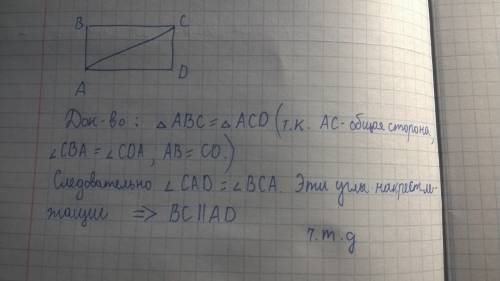 B C
A D
Док-во: △ABC = △ACD (т.к. AC- общая сторона,
∠CBA = ∠CDA, AB = CD.)
Следовательно ∠CAD = ∠BCA. Эти углы накрестле-
жащие => BC || AD
ч.т.д